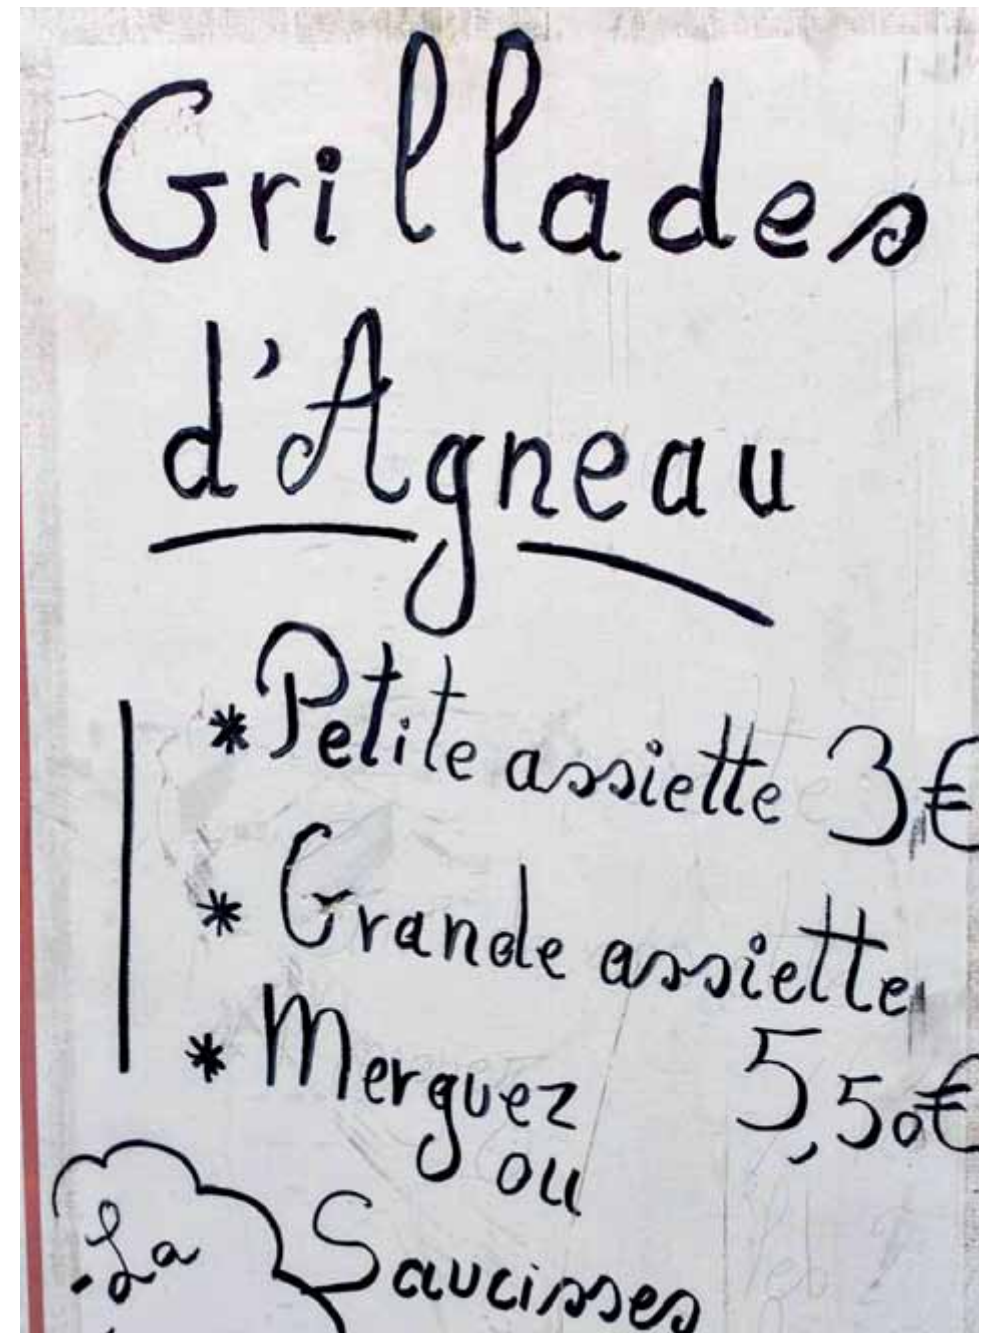 Grillades
d'Agneau
* Petite assiette 3€
* Grande assiette
5,50€
* Merguez
ou
Saucisses
La